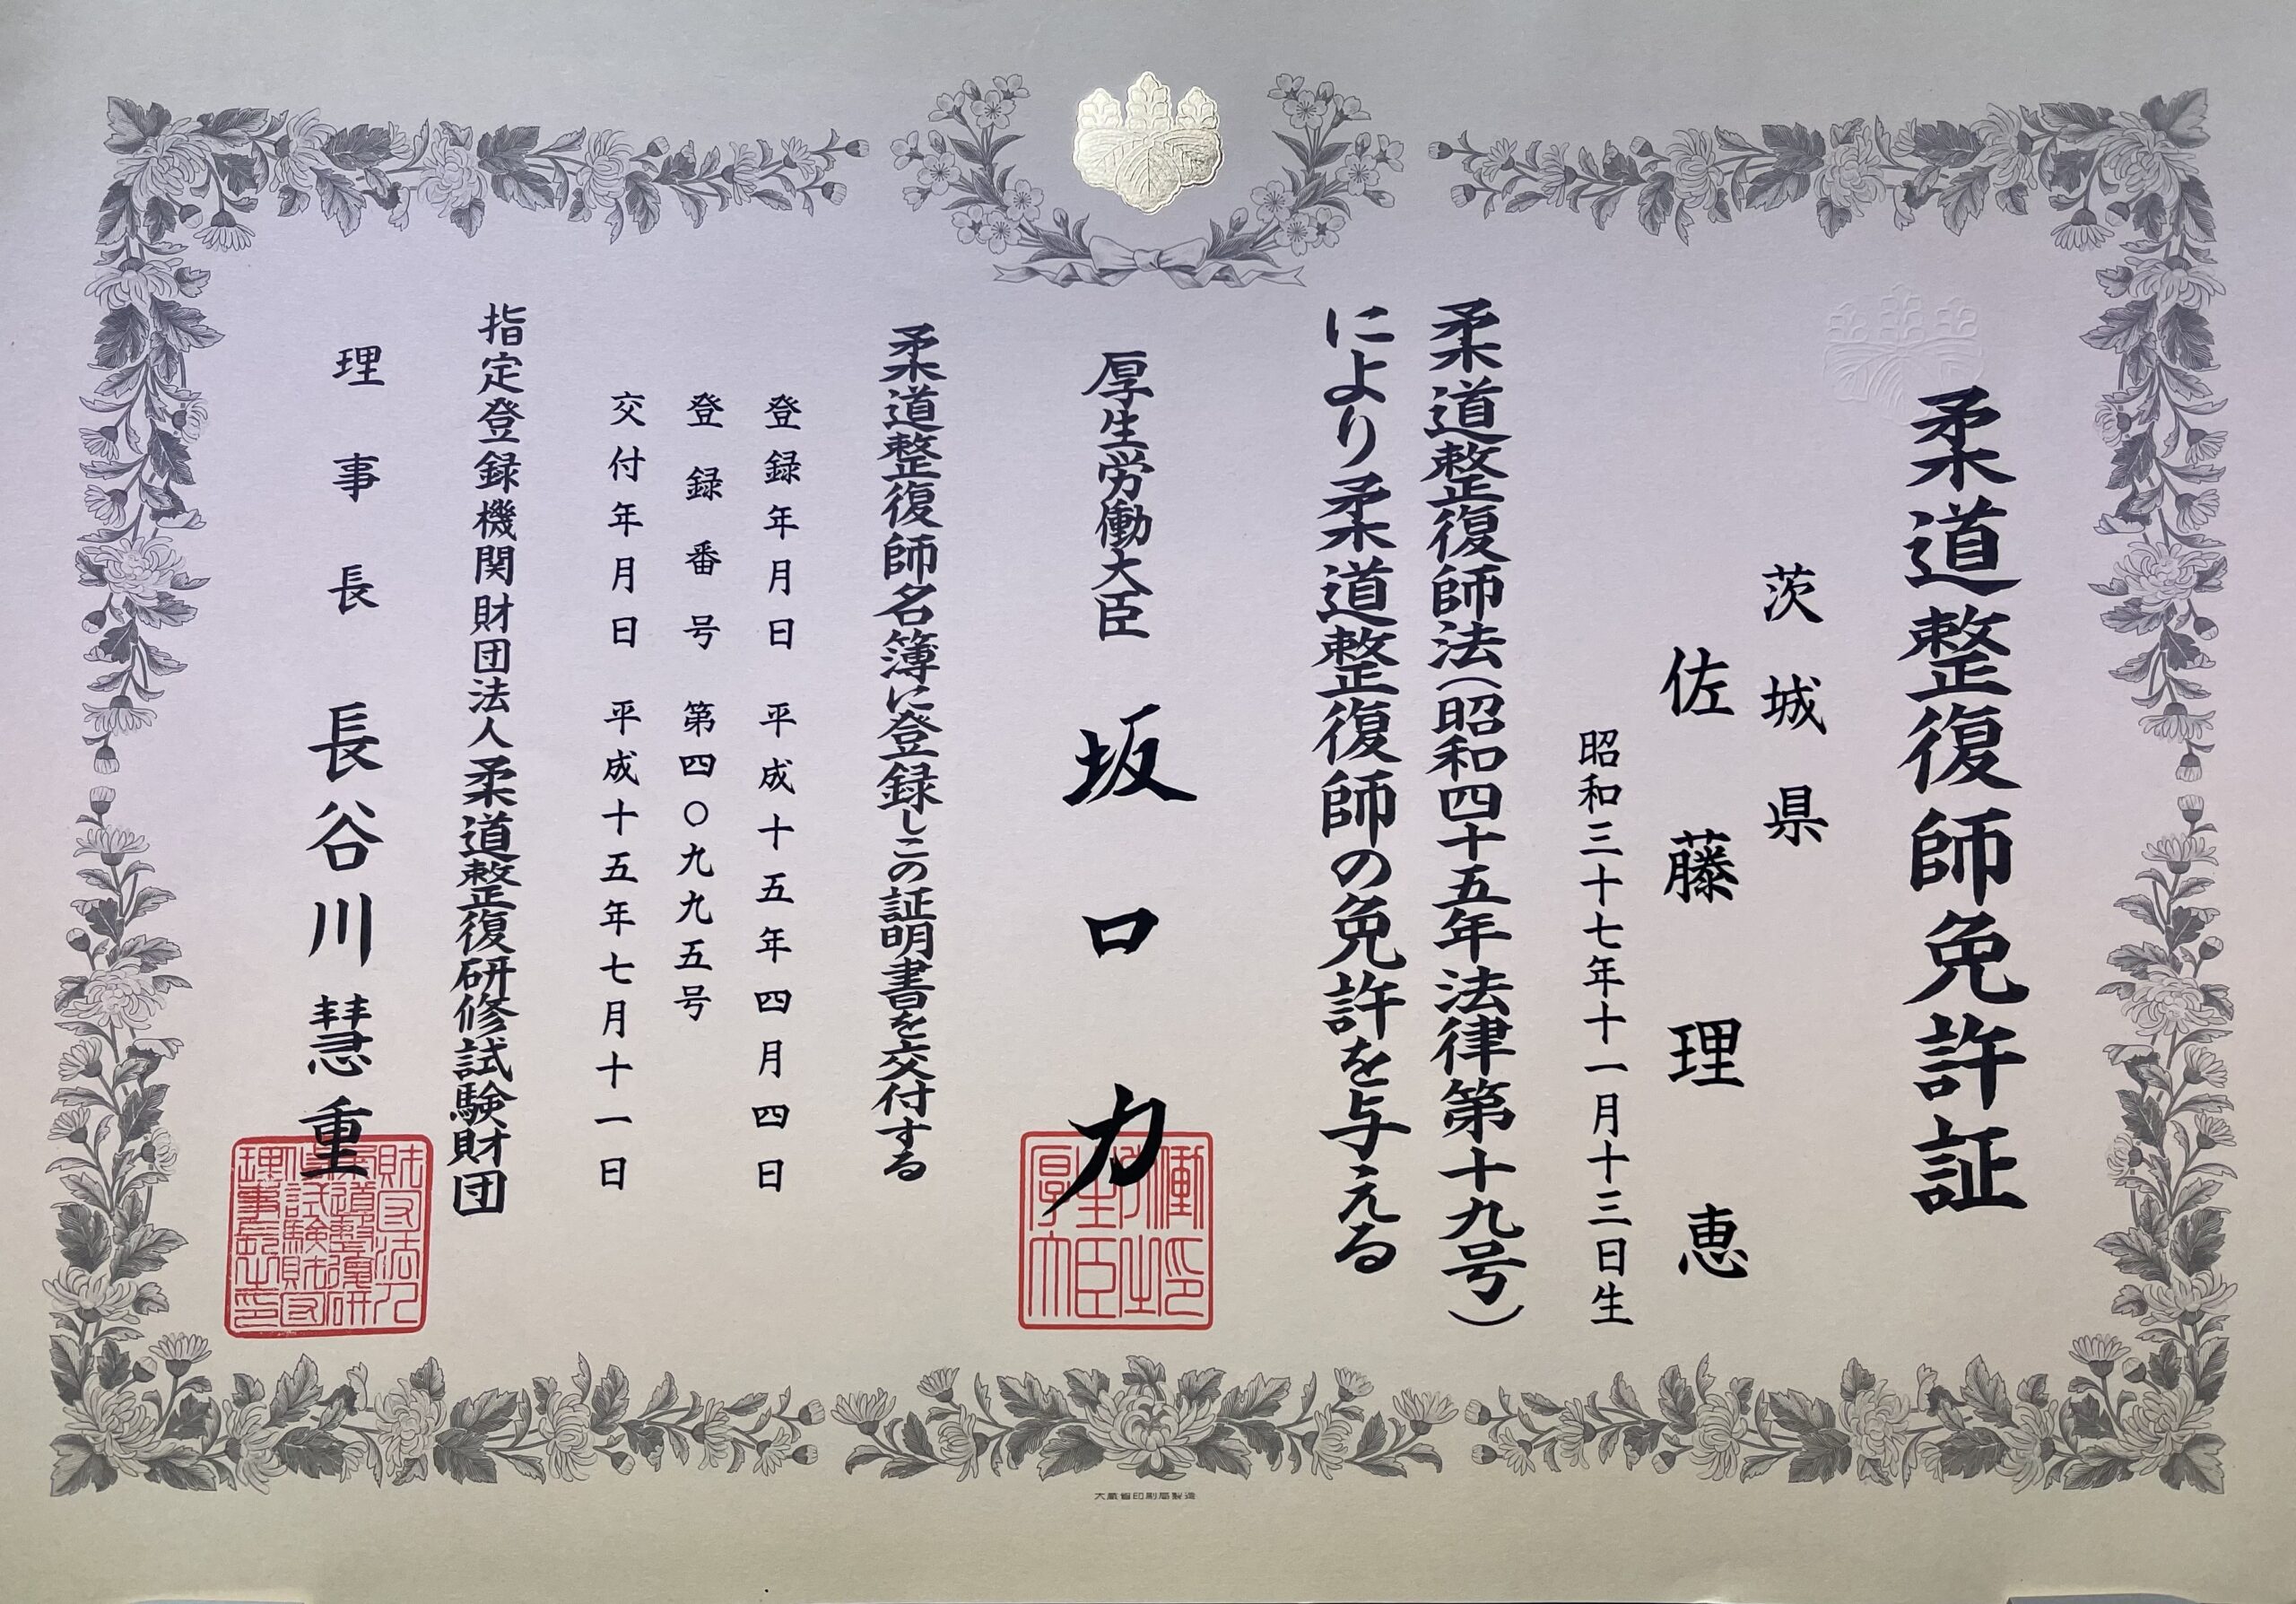 柔道整復師免許証
茨城県
佐藤理恵
昭和三十七年十一月十三日生
柔道整復師法(昭和四十五年法律第十九号)
により柔道整復師の免許を与える
厚生労働大臣 坂口力
柔道整復師名簿に登録しこの証明書を交付する
登録年月日 平成十五年四月四日
登録番号 第四〇九九五号
交付年月日 平成十五年七月十一日
指定登録機関財団法人柔道整復研修試験財団
理事長 長谷川慧重
大蔵省印刷局製造